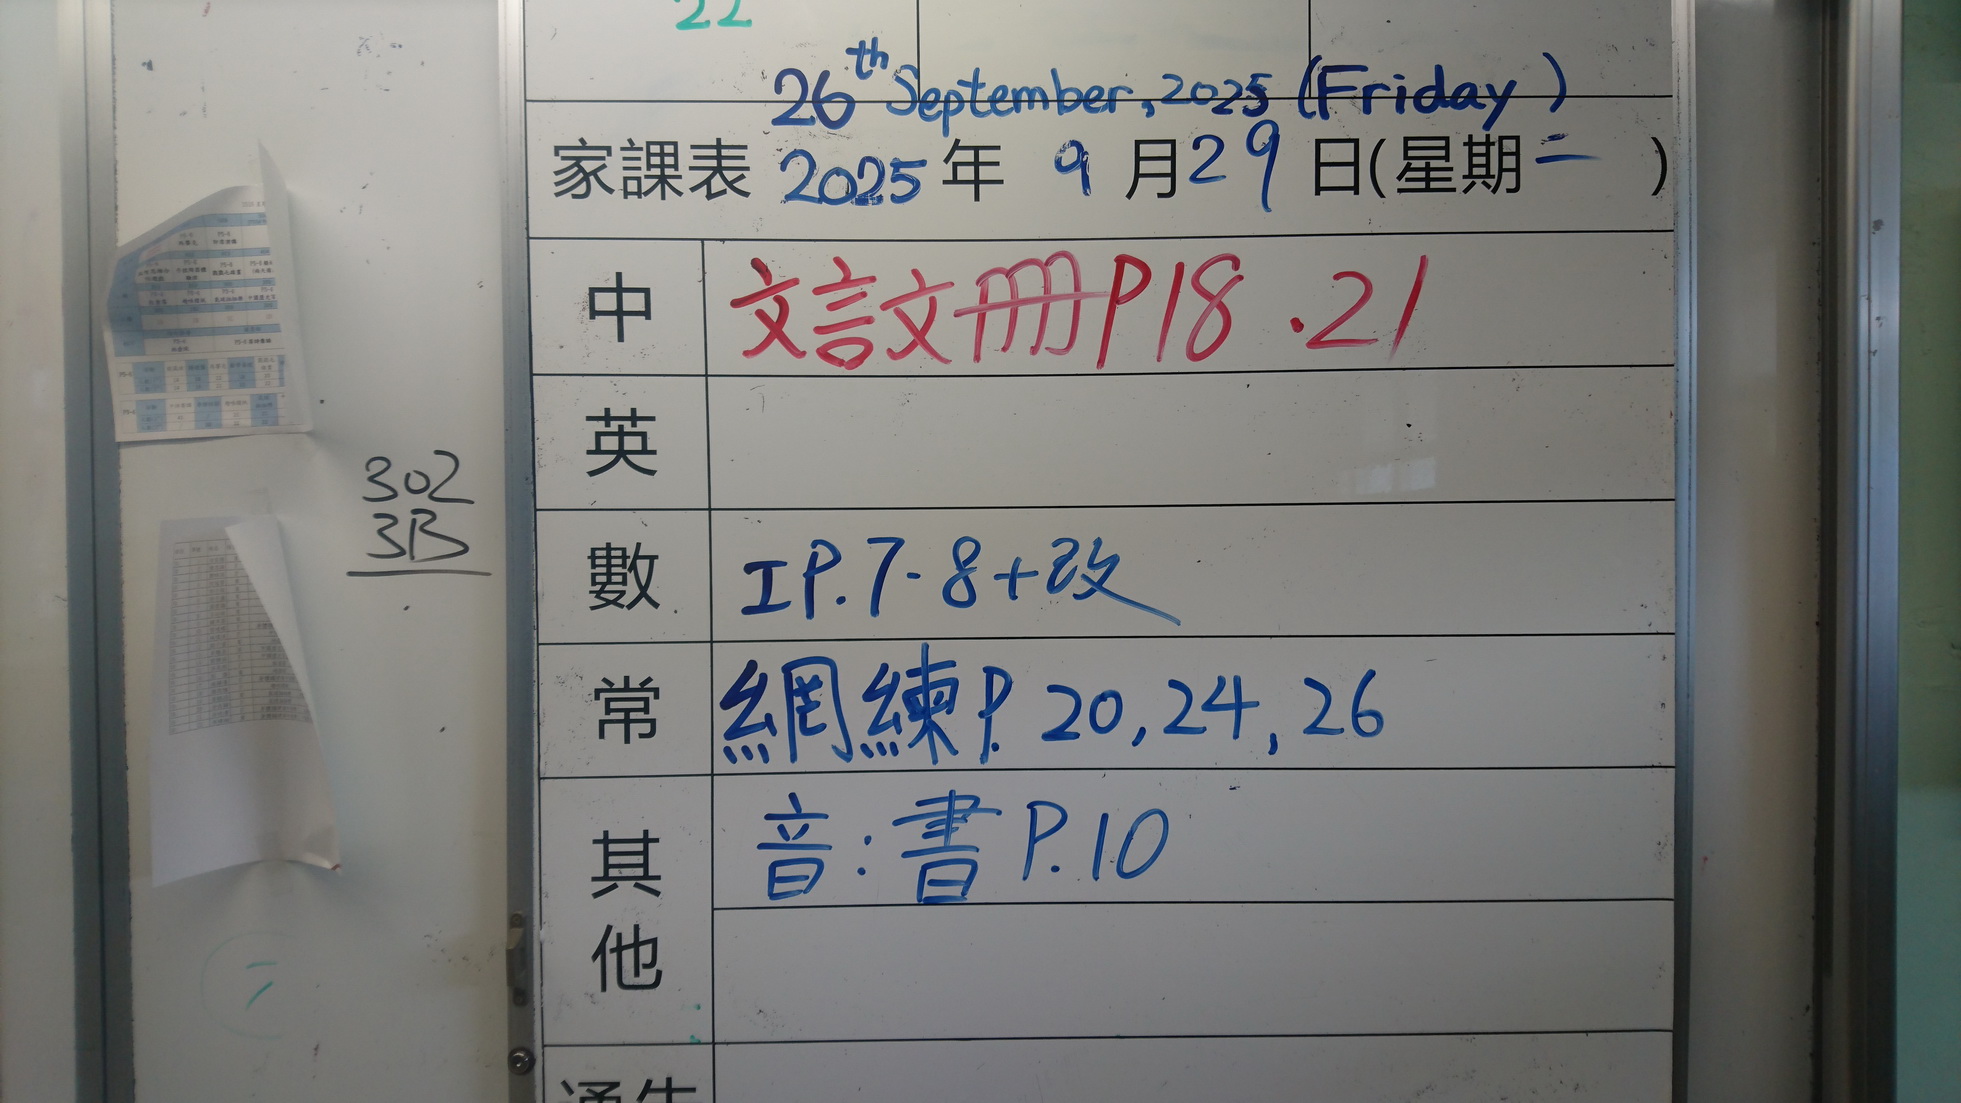 22
26th September, 2025 (Friday)
家課表 2025 年 9 月 29 日(星期二 )
中 文言文冊P18 .21
英
數 IP.7-8+改
常 網練P. 20,24,26
其他 音:書P.10
通告
302
3B